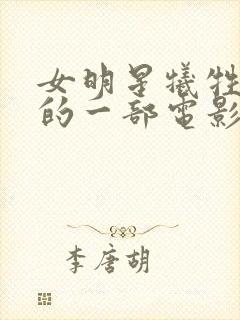 女明星犧牲
的一部電影
李唐胡